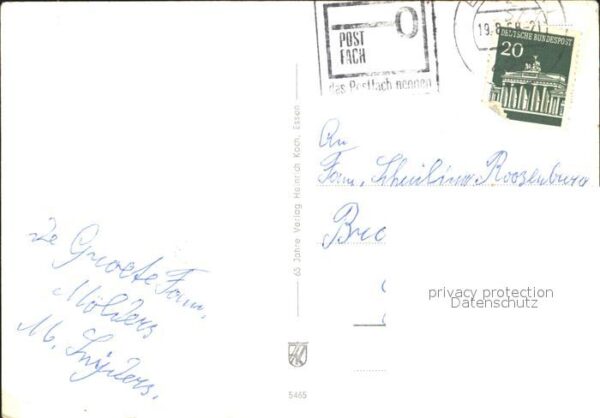 POST
FACH
das Postfach nennen
19.8.68-21
DEUTSCHE BUNDESPOST
20
65 Jahre Verlag Heinrich Koch, Essen
An
Fam. Roozenburg
privacy protection
Datenschutz
De Groete Fam.
Mölders
M. Snijders.
5465